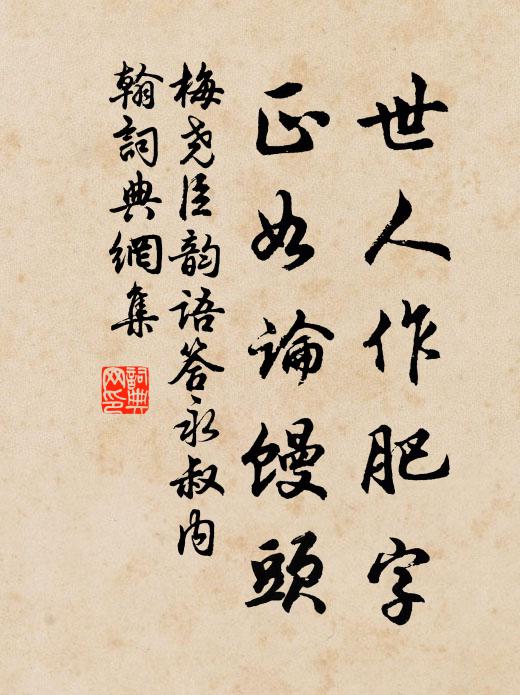 世人作肥字
正如論馒頭
梅尧臣韵语答永叔内
翰詞典網集
詞典网印